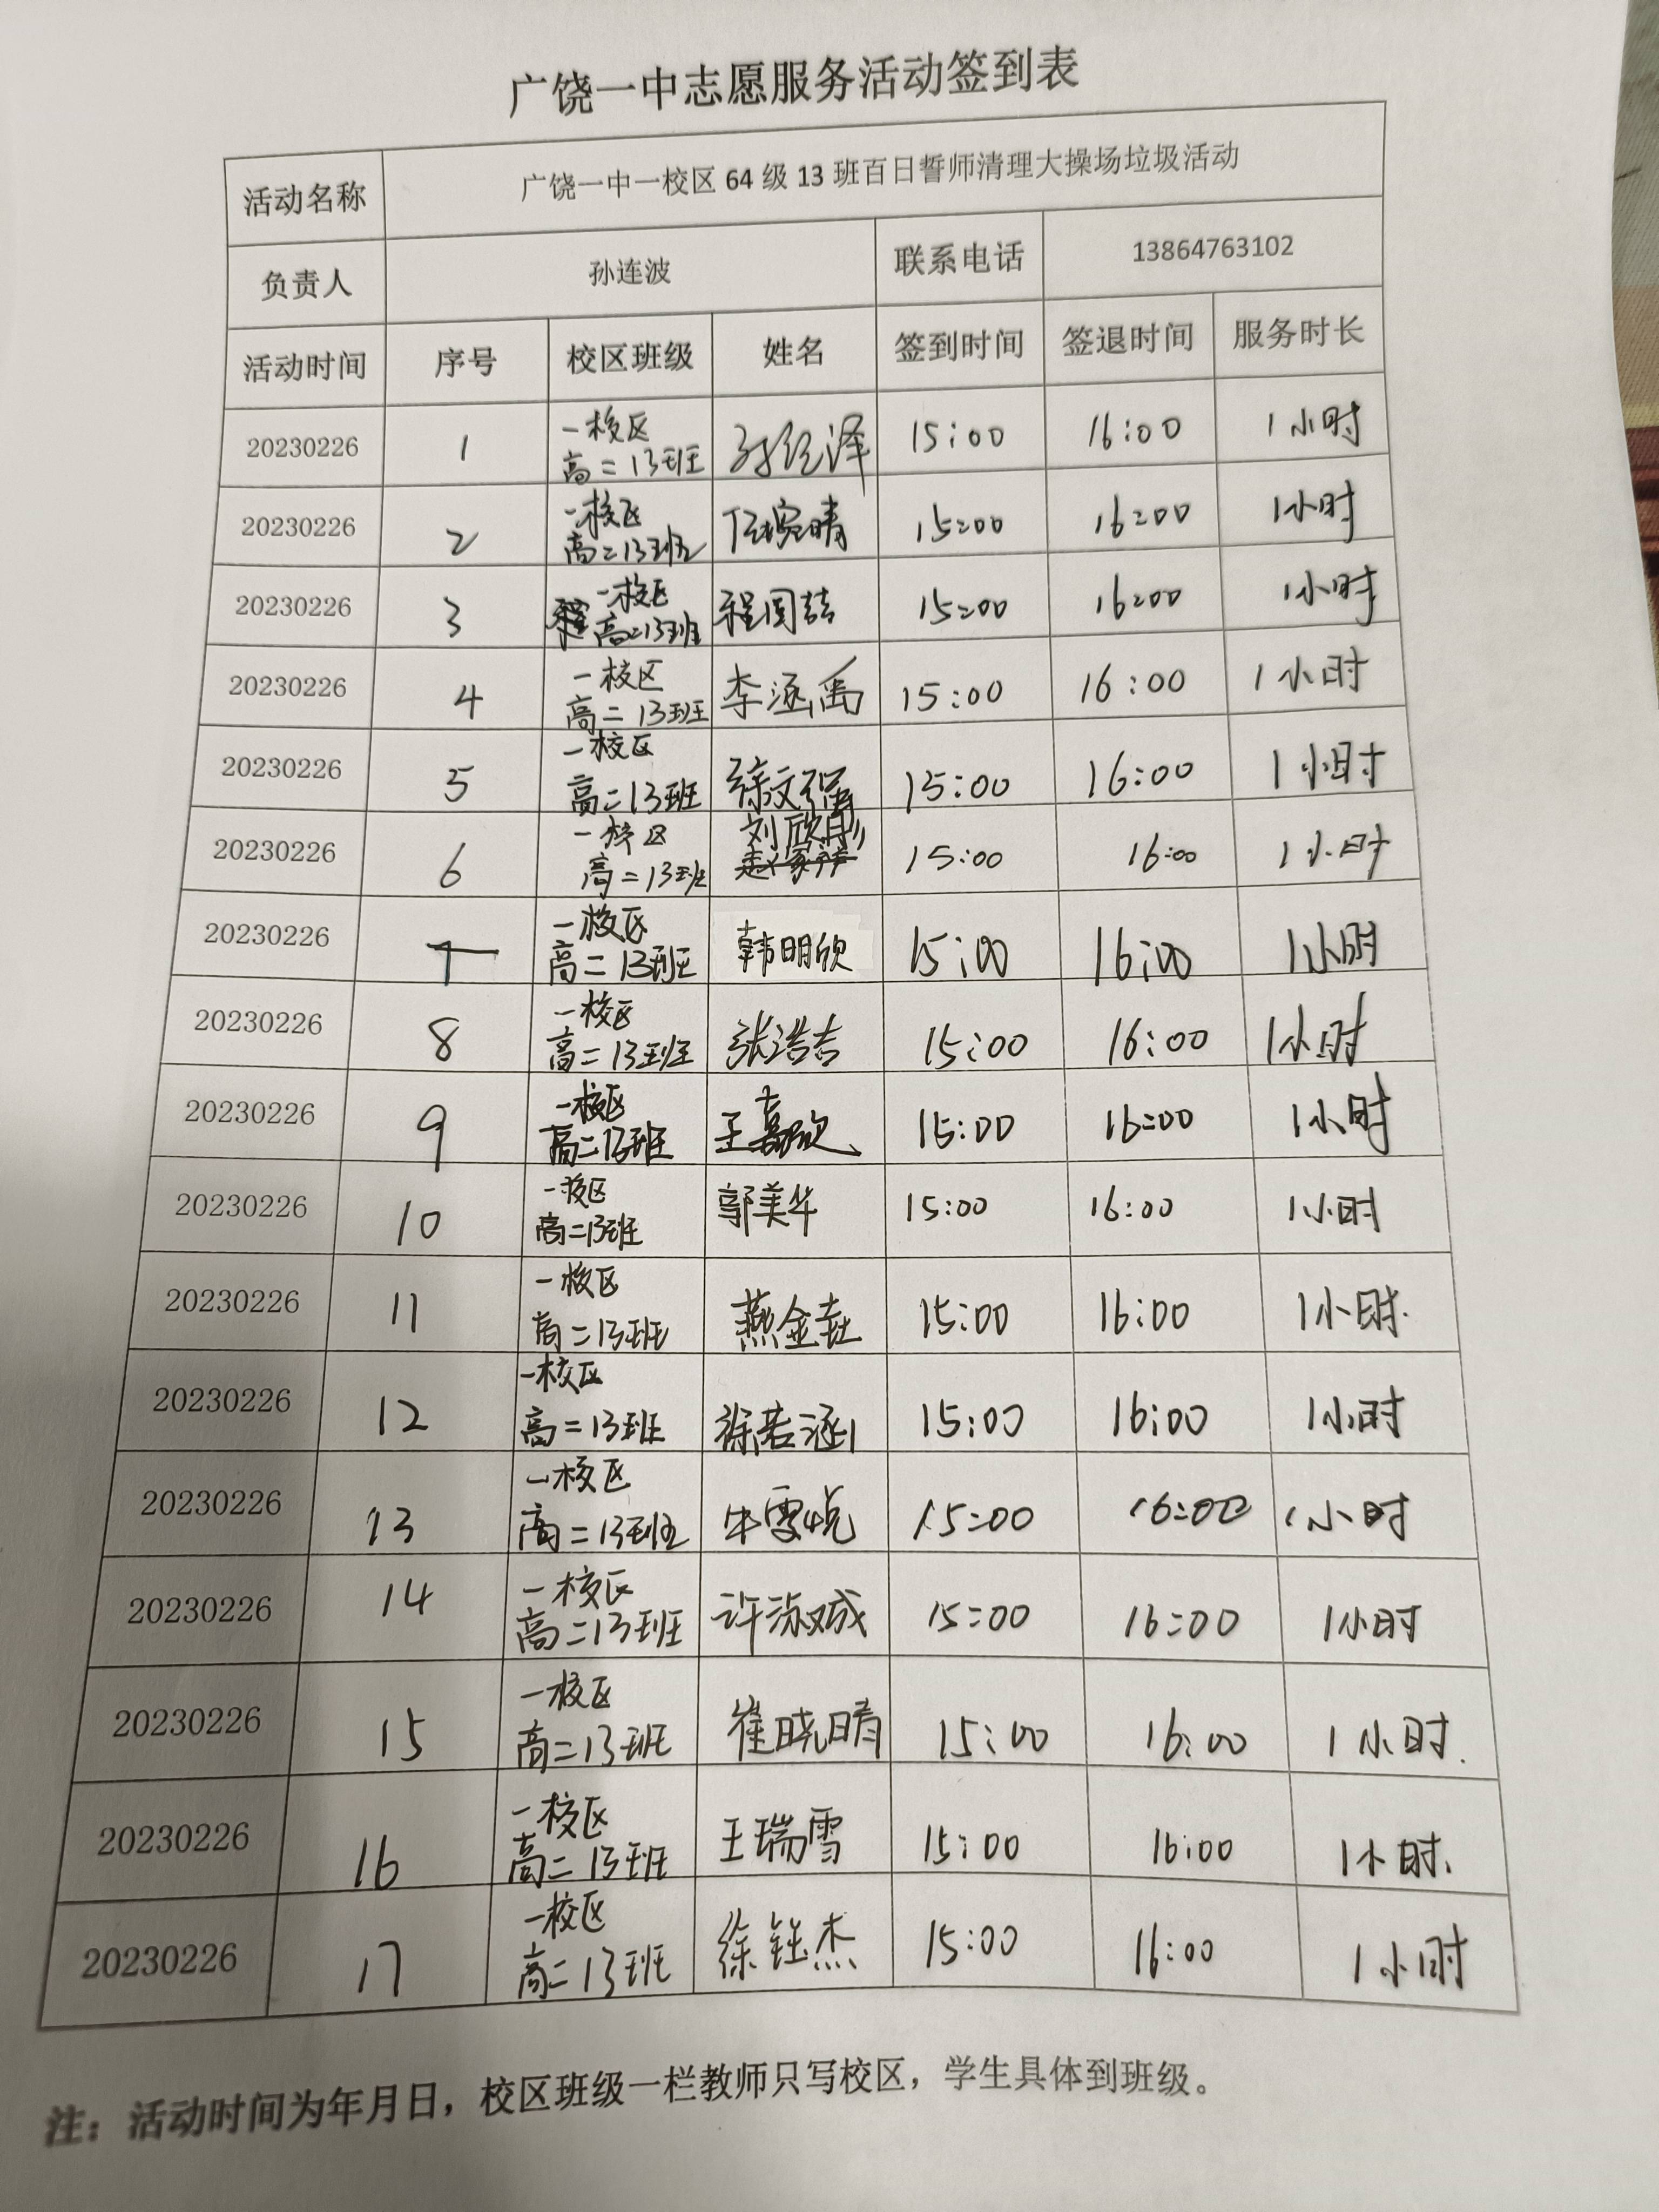 广饶一中志愿服务活动签到表
活动名称 广饶一中一校区 64 级 13 班百日誓师清理大操场垃圾活动
负责人 孙连波 联系电话 13864763102
活动时间 序号 校区班级 姓名 签到时间 签退时间 服务时长
20230226 1 一校区 高二13班 15:00 16:00 1小时
20230226 2 一校区 高二13班 任婉晴 15:00 16:00 1小时
20230226 3 一校区 高二13班 程国喆 15:00 16:00 1小时
20230226 4 一校区 高二13班 李涵禹 15:00 16:00 1小时
20230226 5 一校区 高二13班 徐文强 15:00 16:00 1小时
20230226 6 一校区 高二13班 刘欣彤 15:00 16:00 1小时
20230226 7 一校区 高二13班 韩明欣 15:00 16:00 1小时
20230226 8 一校区 高二13班 张浩吉 15:00 16:00 1小时
20230226 9 一校区 高二13班 王嘉欣 15:00 16:00 1小时
20230226 10 一校区 高二13班 郭美华 15:00 16:00 1小时
20230226 11 一校区 高二13班 燕金垚 15:00 16:00 1小时.
20230226 12 一校区 高二13班 徐若涵 15:00 16:00 1小时
20230226 13 一校区 高二13班 牛雪悦 15:00 16:00 1小时
20230226 14 一校区 高二13班 许淑斌 15:00 16:00 1小时
20230226 15 一校区 高二13班 崔晓晴 15:00 16:00 1小时.
20230226 16 一校区 高二13班 王瑞雪 15:00 16:00 1小时.
20230226 17 一校区 高二13班 徐钰杰 15:00 16:00 1小时
注：活动时间为年月日，校区班级一栏教师只写校区，学生具体到班级。